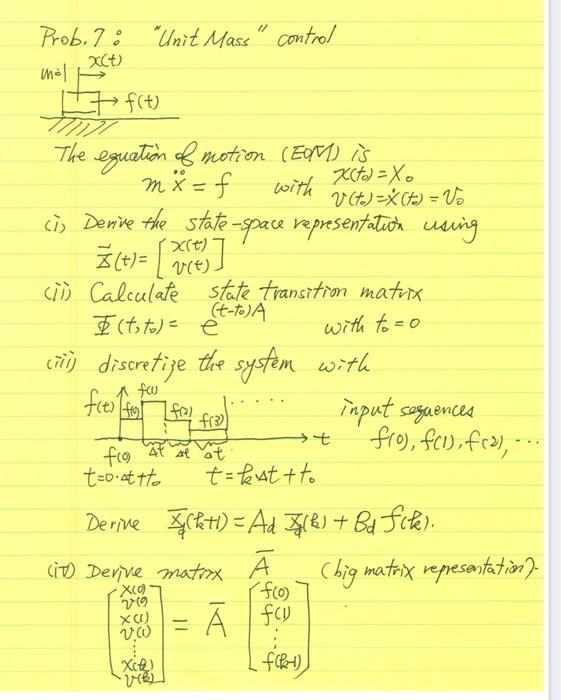 Prob. 7 : "Unit Mass" control
x(t)
m=1
f(t)
The equation of motion (EOM) is
m ẍ = f with x(t₀) = X₀
v(t₀) = ẋ(t₀) = V₀
(i) Derive the state-space representation using
X⃗(t) = [x(t) v(t)]
(ii) Calculate state transition matrix
Φ(t, t₀) = e^(t-t₀)A with t₀ = 0
(iii) discretize the system with
f(t) f(0) f(1) f(2) f(3) ...... input sequences
Δt Δt Δt t f(0), f(1), f(2), ...
f(0)
t=0·Δt+t₀ t=kΔt+t₀
Derive X̄d(k+1) = Ad X̄d(k) + Bd f(k).
(iv) Derive matrix Ā (big matrix representation).
[x(0) v(0) x(1) v(1) ⋮ x(k) v(k)] = Ā [f(0) f(1) ⋮ f(k-1)]